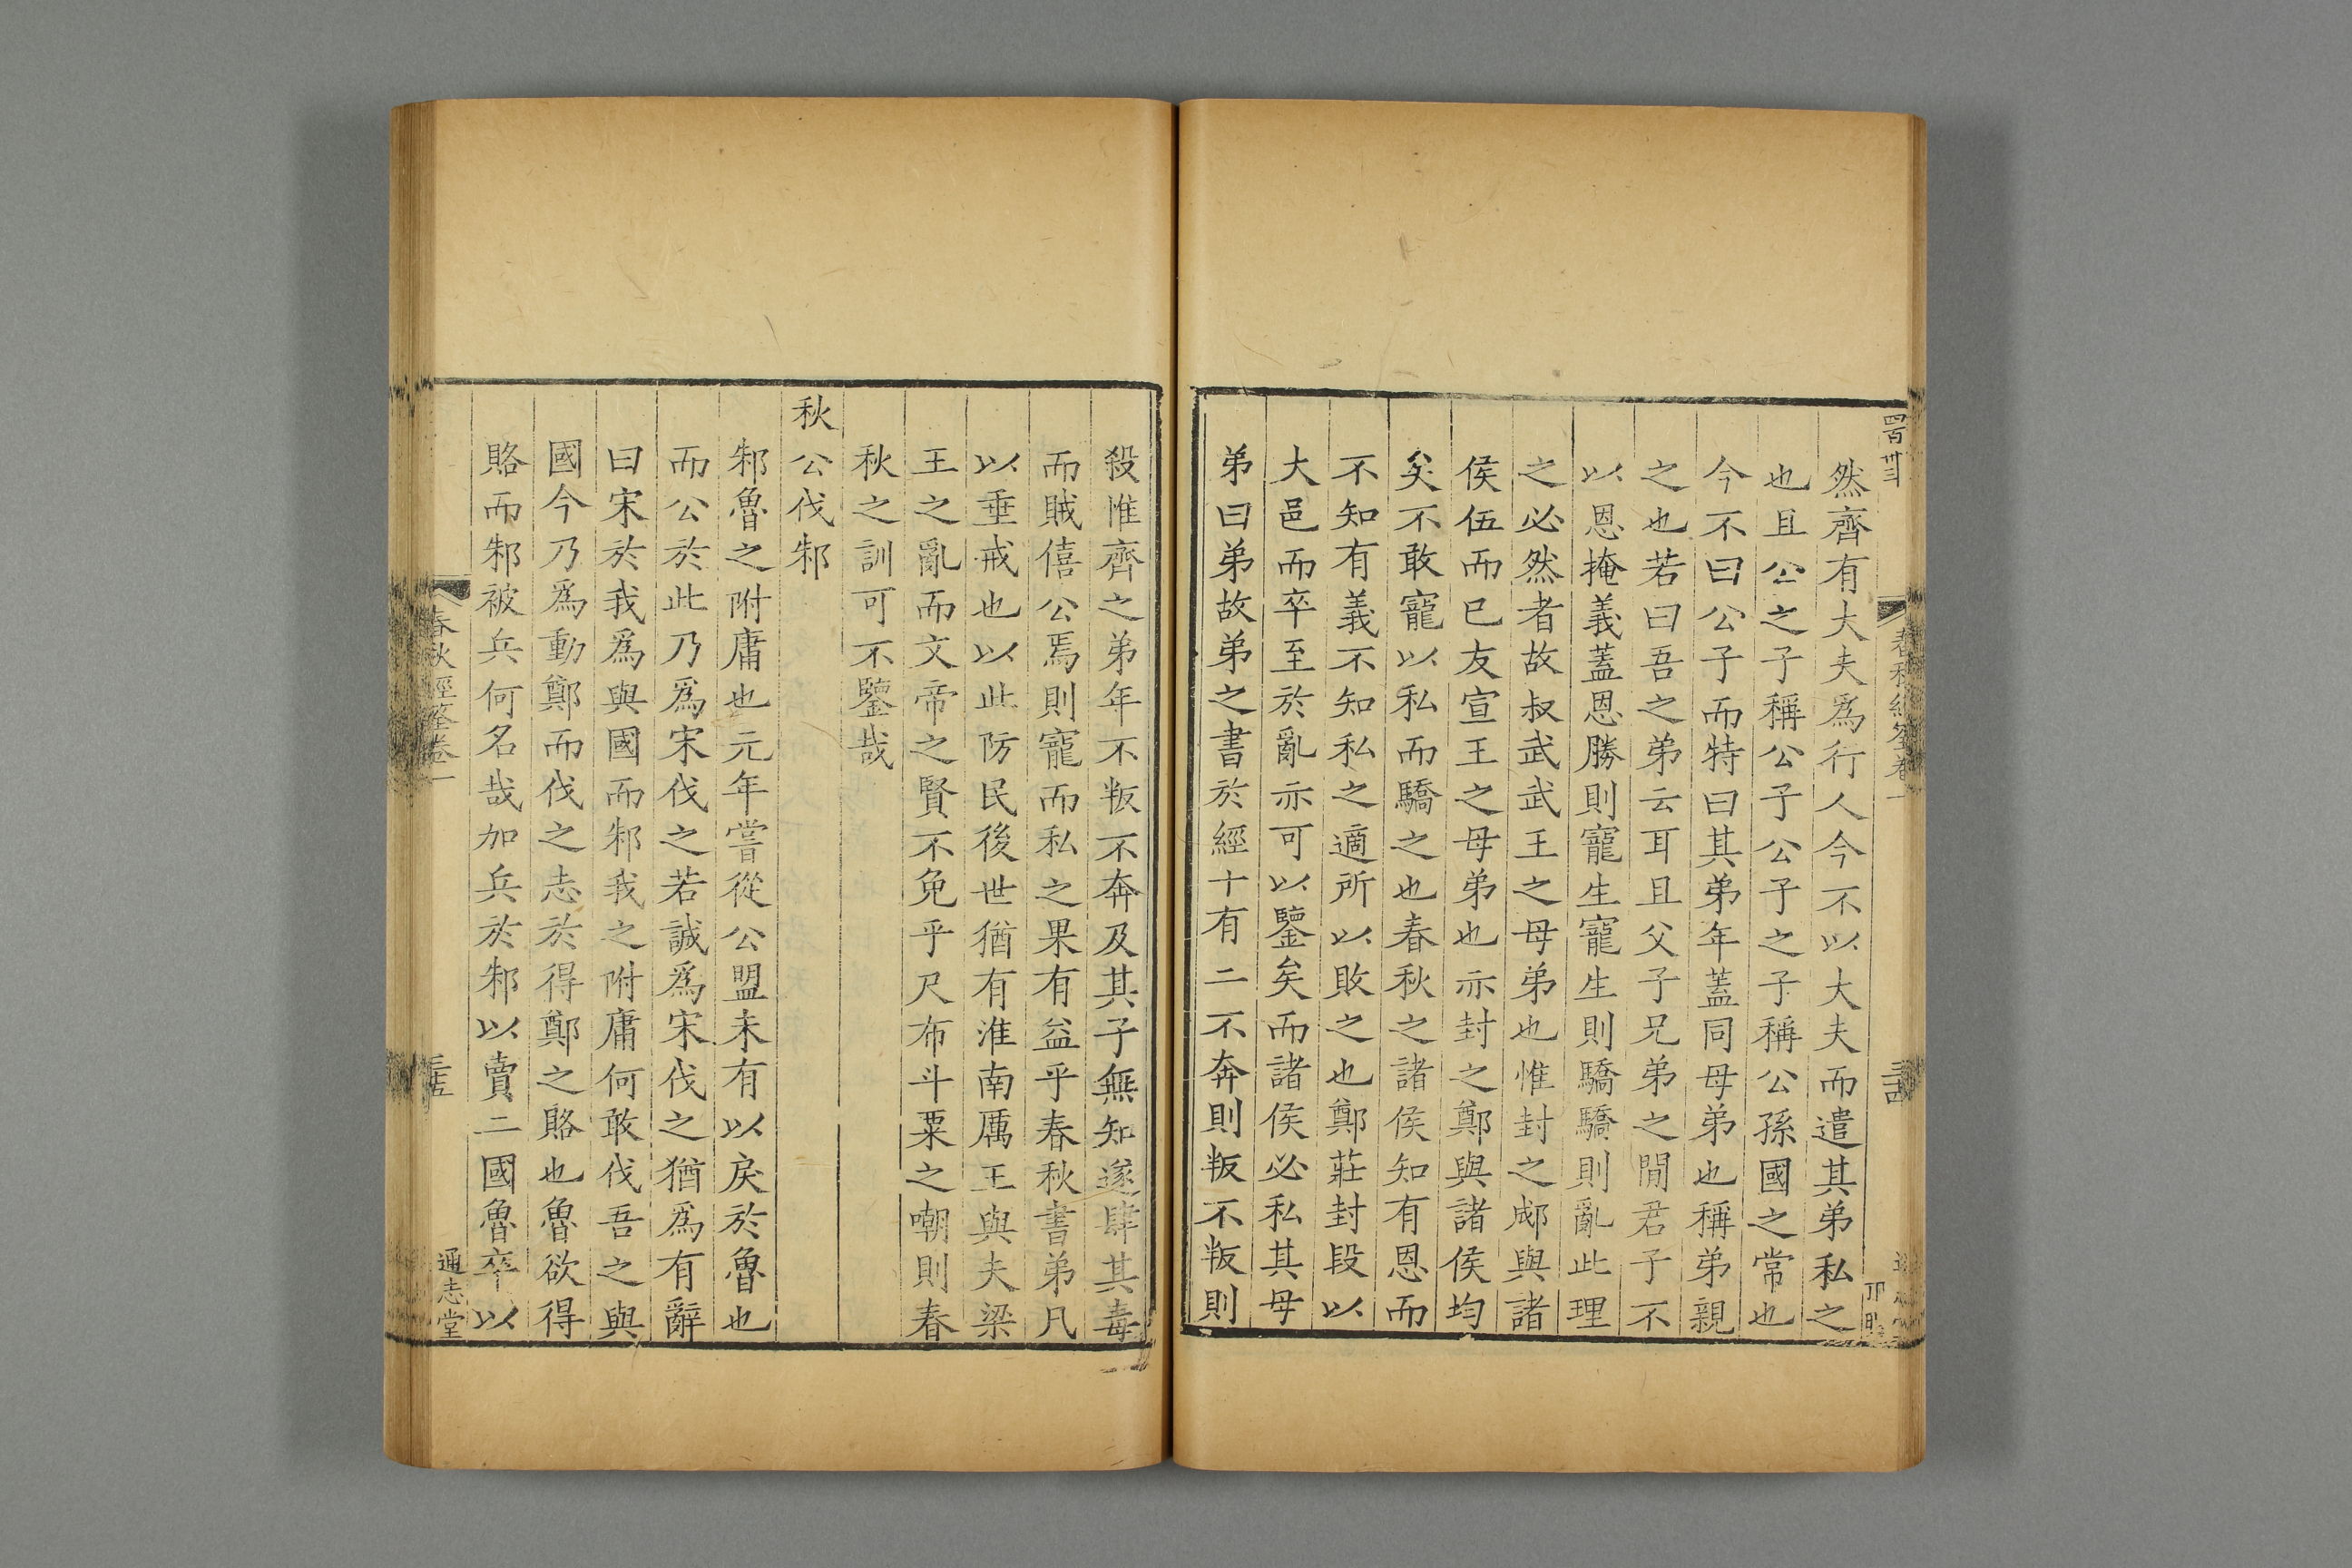 四百卅三
春秋經筌卷一
三十四
然齊有大夫爲行人今不以大夫而遣其弟私之
也且公之子稱公子公子之子稱公孫國之常也
今不曰公子而特曰其弟年蓋同母弟也稱弟親
之也若曰吾之弟云耳且父子兄弟之閒君子不
以恩掩義蓋恩勝則寵生寵生則驕驕則亂此理
之必然者故叔武武王之母弟也惟封之郕與諸
侯伍而已友宣王之母弟也亦封之鄭與諸侯均
矣不敢寵以私而驕之也春秋之諸侯知有恩而
不知有義不知私之適所以敗之也鄭莊封段以
大邑而卒至於亂亦可以鑒矣而諸侯必私其母
弟曰弟故弟之書於經十有二不奔則叛不叛則
殺惟齊之弟年不叛不奔及其子無知遂肆其毒
而賊僖公焉則寵而私之果有益乎春秋書弟凡
以垂戒也以此防民後世猶有淮南厲王與夫梁
王之亂而文帝之賢不免乎尺布斗粟之嘲則春
秋之訓可不鑒哉
秋公伐邾
邾魯之附庸也元年嘗從公盟未有以戾於魯也
而公於此乃爲宋伐之若誠爲宋伐之猶爲有辭
曰宋於我爲與國而邾我之附庸何敢伐吾之與
國今乃爲動鄭而伐之志於得鄭之賂也魯欲得
賂而邾被兵何名哉加兵於邾以賣二國魯卒以
春秋經筌卷一
三十五
通志堂